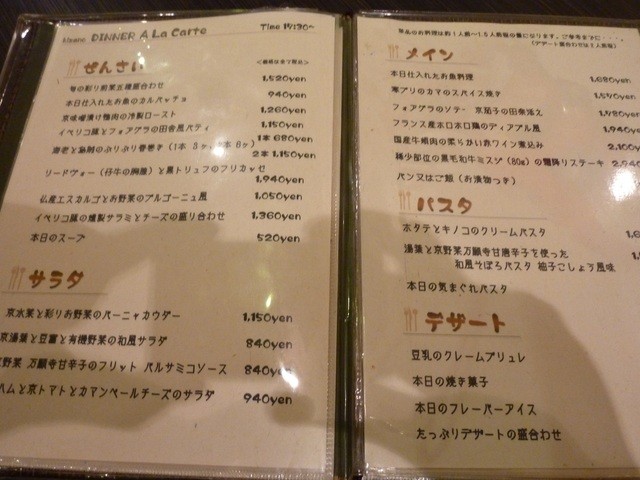 DINNER A La Carte
Time 17:30~
ぜんさい
<価格は全て税込>
旬の彩り前菜五種盛合わせ 1,520yen
本日仕入れたお魚のカルパッチョ 940yen
京味噌漬け鴨肉の冷製ロースト 1,260yen
イベリコ豚とフォアグラの田舎風パティ 1,150yen
海老と湯葉のぷりぷり春巻き(1本 3ヶ、2本 6ヶ) 1本 680yen
2本 1,150yen
リードヴォー(仔牛の胸腺)と黒トリュフのフリカッセ
1,940yen
仏産エスカルゴとお野菜のブルゴーニュ風 1,050yen
イベリコ豚の燻製サラミとチーズの盛り合わせ 1,360yen
本日のスープ 520yen
サラダ
京水菜と彩りお野菜のバーニャカウダー 1,150yen
京湯葉と豆富と有機野菜の和風サラダ 840yen
野菜 万願寺甘唐辛子のフリット バルサミコソース 840yen
ハムと京トマトとカマンベールチーズのサラダ 940yen
単品のお料理は約1人前~1.5人前程の量になります。ご参考までに・・・。
(デザート盛合わせは2人前程)
メイン
本日仕入れたお魚料理 1,680yen
寒ブリのカマのスパイス焼き 1,590yen
フォアグラのソテー 京茄子の田楽添え 1,980yen
フランス産ホロホロ鶏のディアブル風 1,940
国産牛頬肉の柔らかい赤ワイン煮込み 2,100y
稀少部位の黒毛和牛ミスジ(80g)の鉄陣リステーキ
パン又はご飯(お漬物つき)
パスタ
ホタテとキノコのクリームパスタ
湯葉と京野菜万願寺甘唐辛子を使った
和風そぼろパスタ 柚子こしょう風味
本日の気まぐれパスタ
デザート
豆乳のクレームブリュレ
本日の焼き菓子
本日のフレーバーアイス
たっぷりデザートの盛合わせ